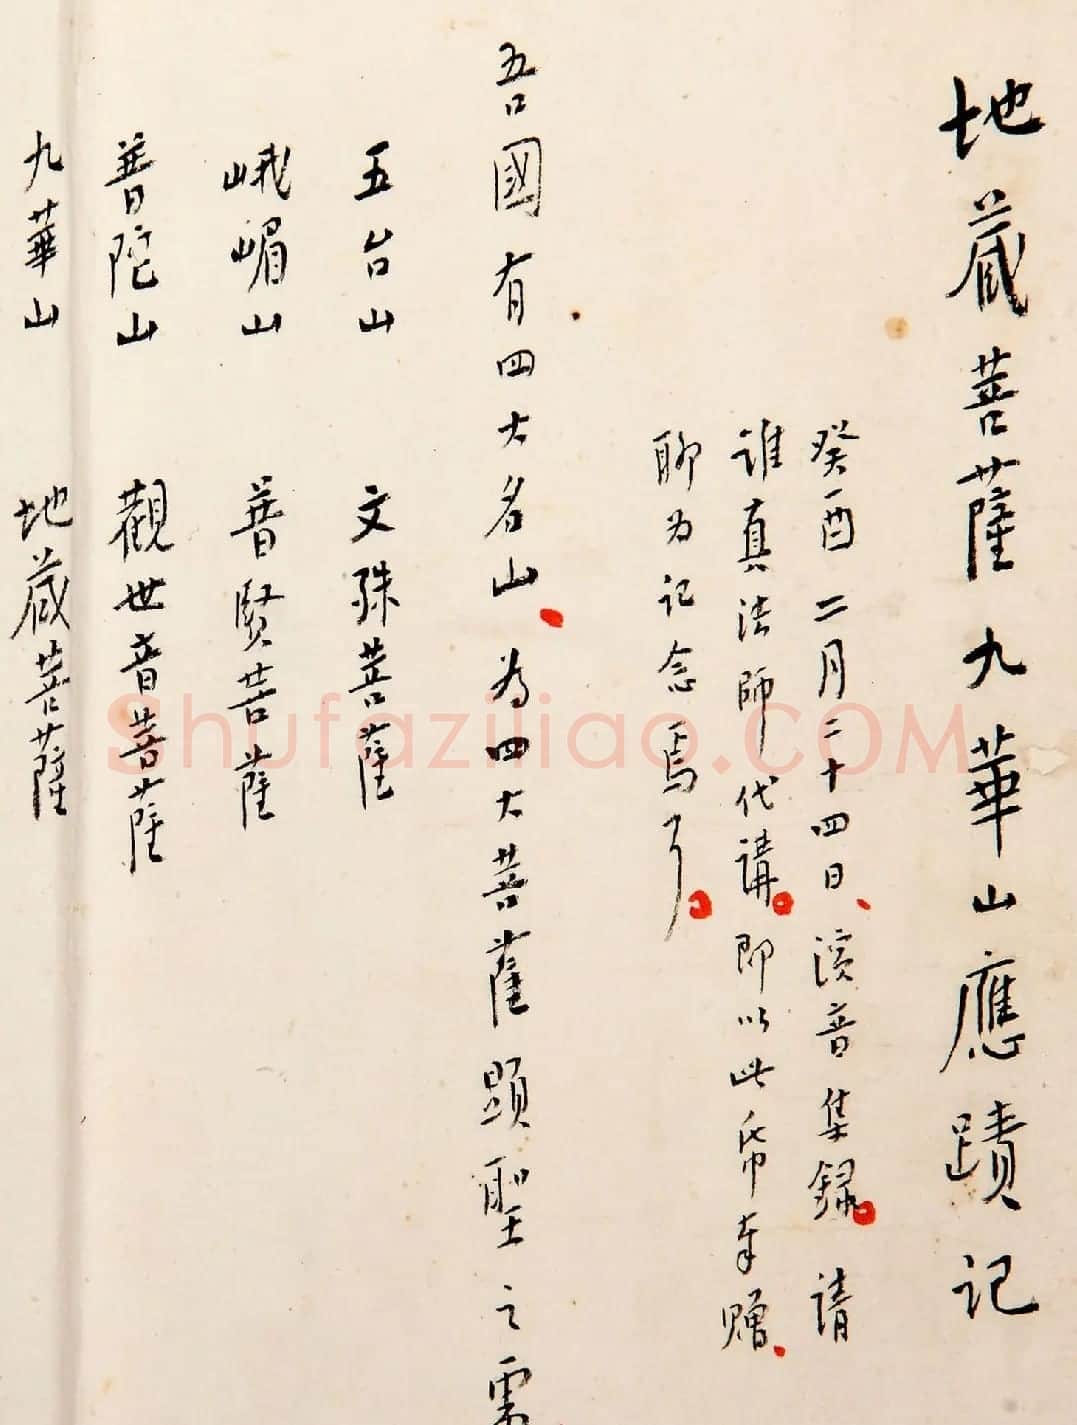 地藏菩薩九華山應蹟記
癸酉二月二十四日、演音集録。請
誰真法師代講。即以此帋奉贈、
聊为記念焉耳。
吾國有四大名山、為四大菩薩顕聖之
五台山 文殊菩薩
峨嵋山 普賢菩薩
普陀山 觀世音菩薩
九華山 地藏菩薩
Shufaziliao.COM